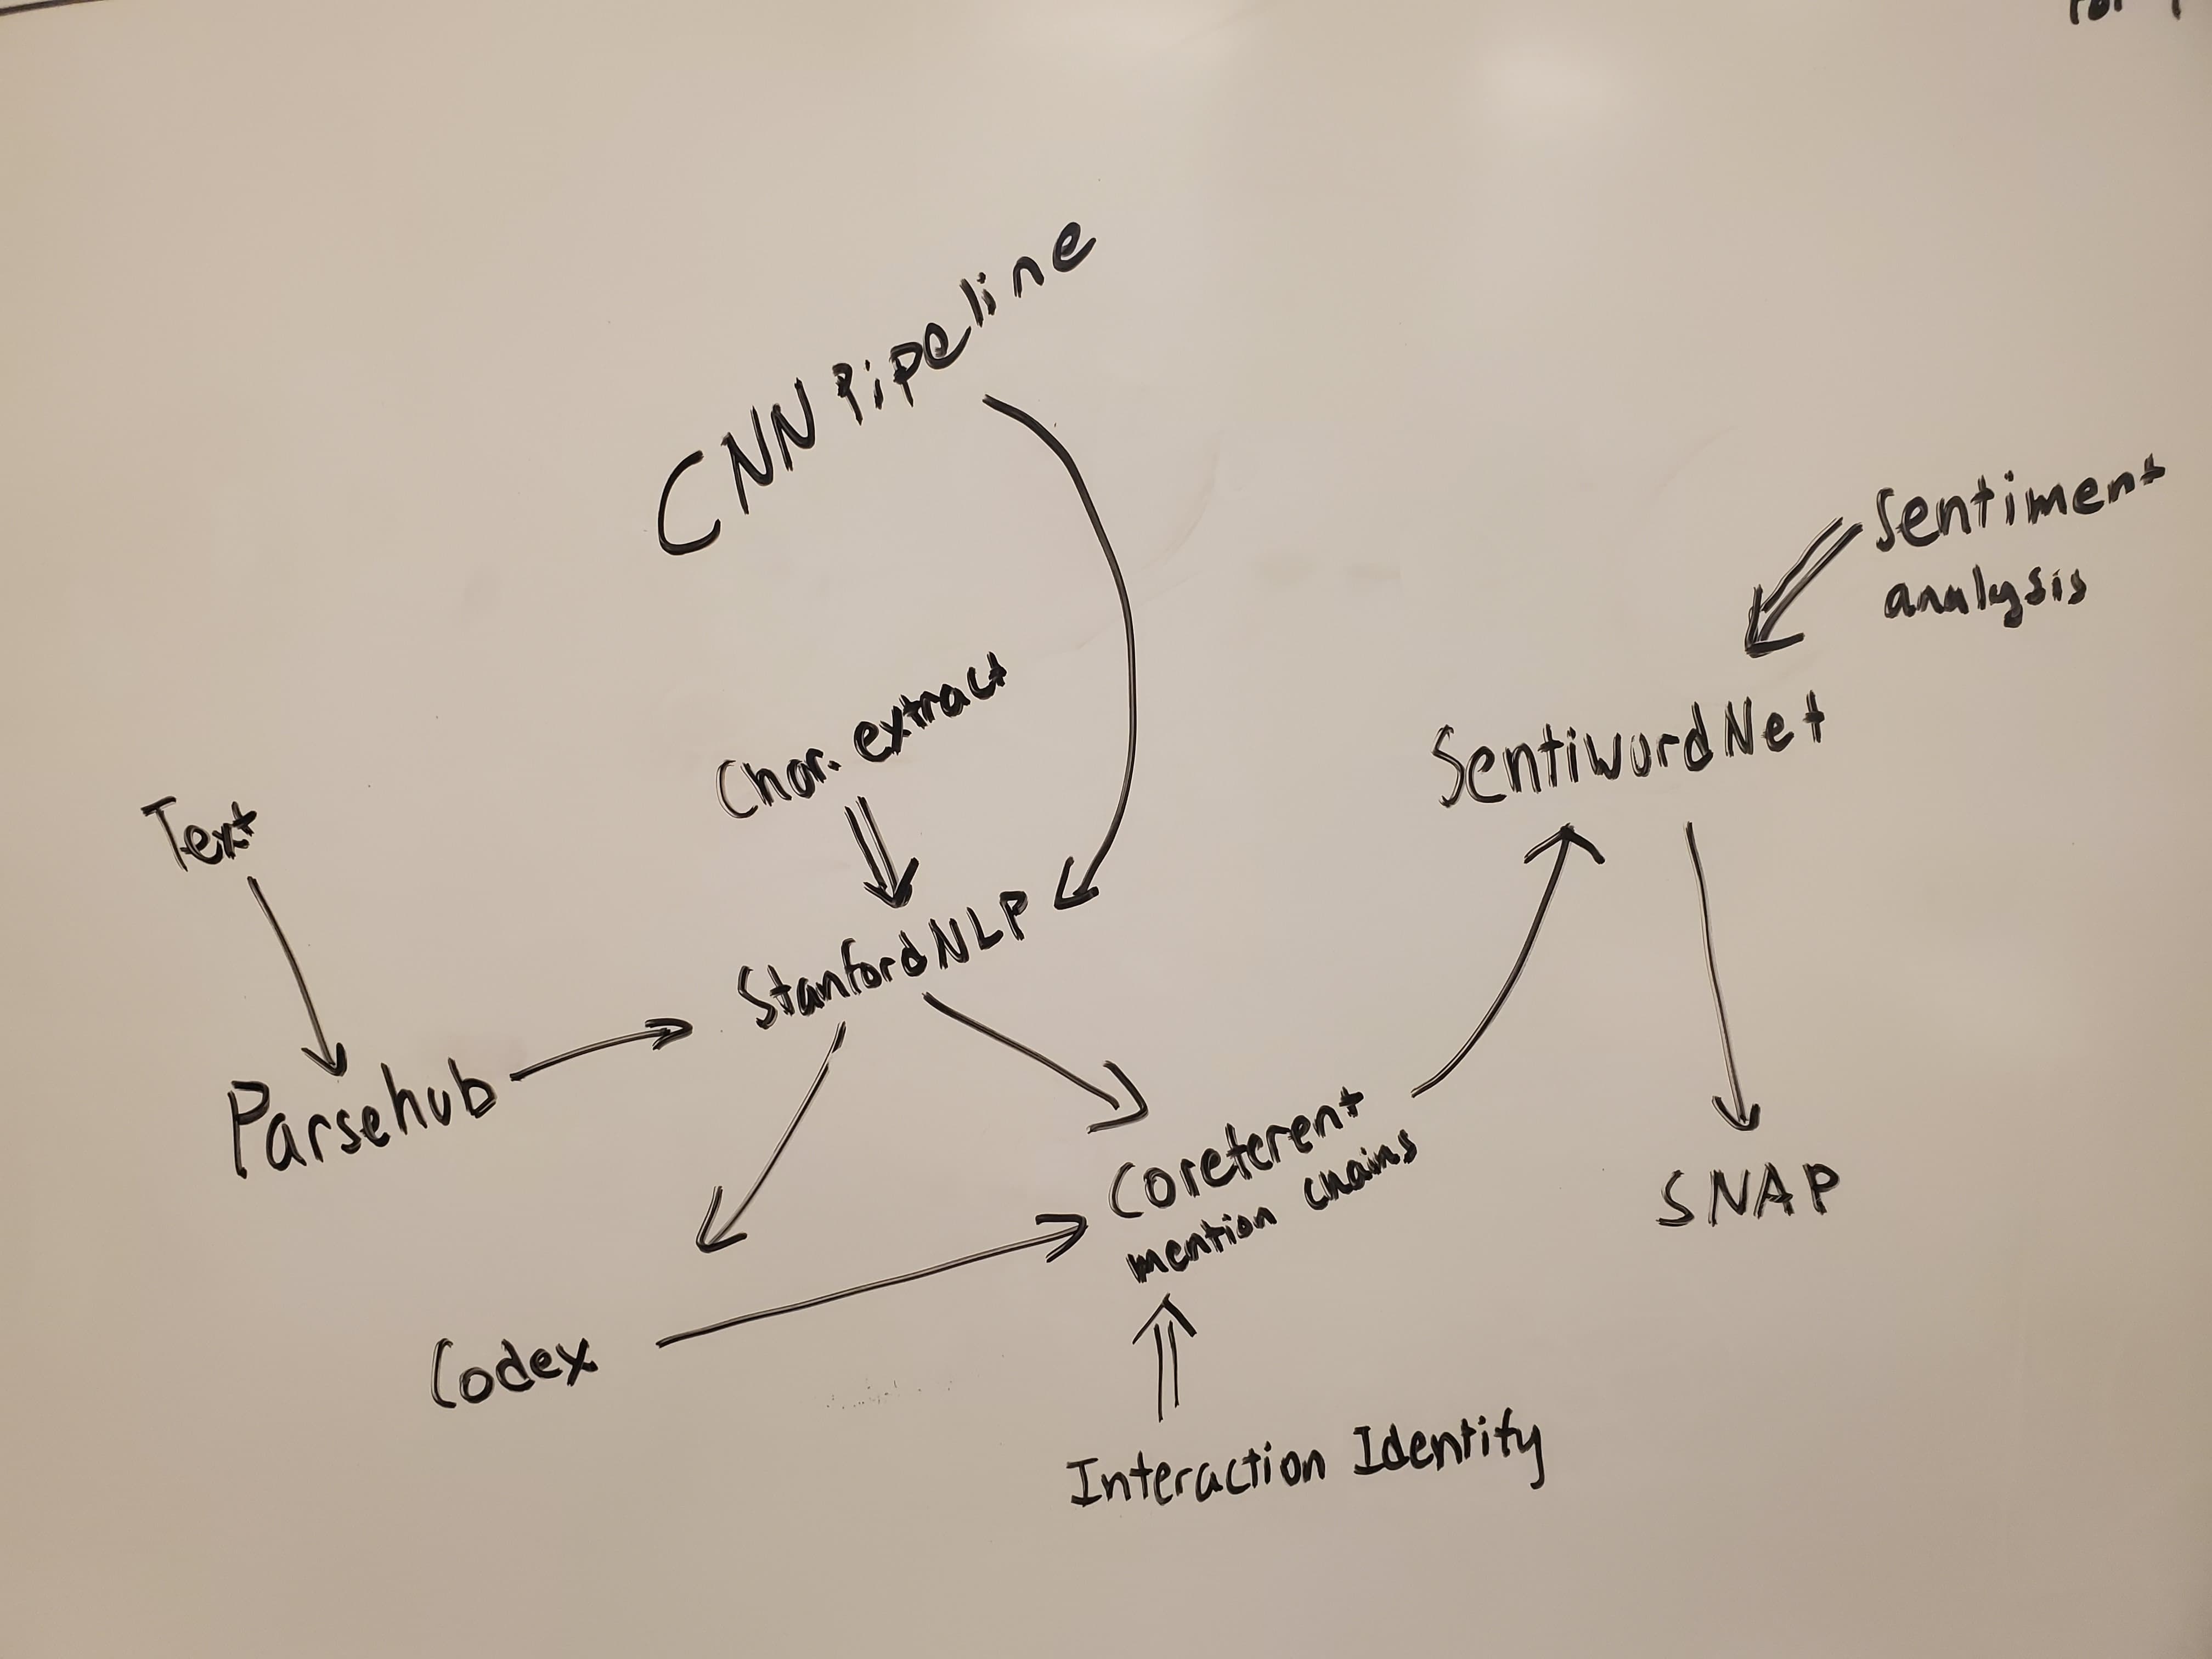 CNN Pipeline
Sentiment
analysis
Char. extract
SentiwordNet
Text
StanfordNLP
Parsehub
Coreferent
mention chains
SNAP
Codex
Interaction Identify